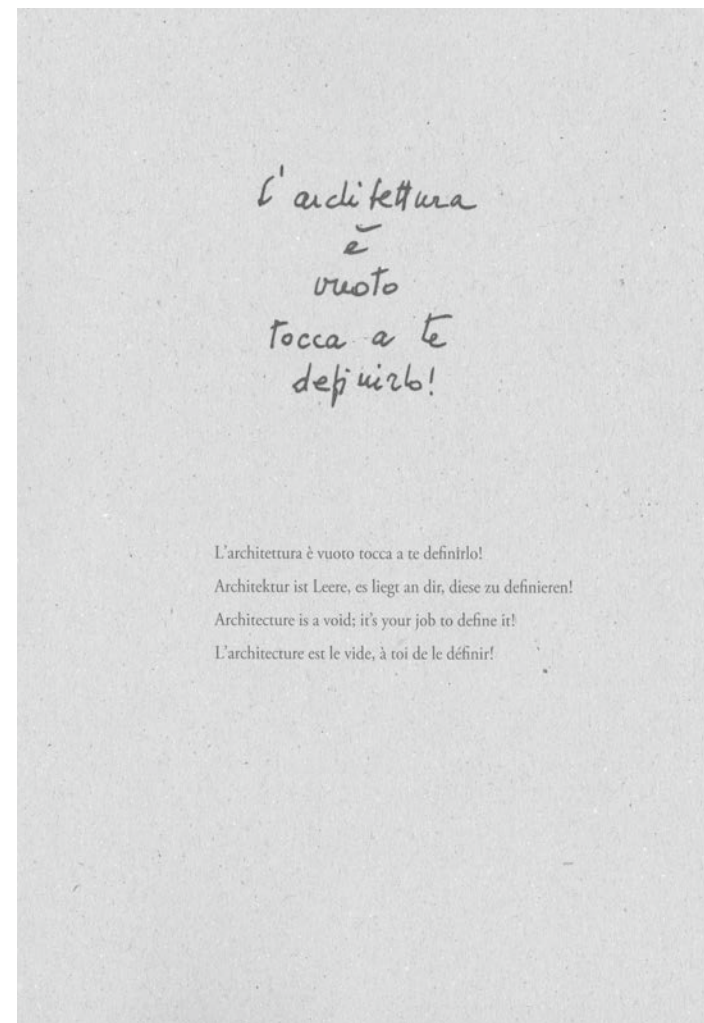 l'architettura
è
vuoto
tocca a te
definirlo!
L'architettura è vuoto tocca a te definirlo!
Architektur ist Leere, es liegt an dir, diese zu definieren!
Architecture is a void; it's your job to define it!
L'architecture est le vide, à toi de le définir!